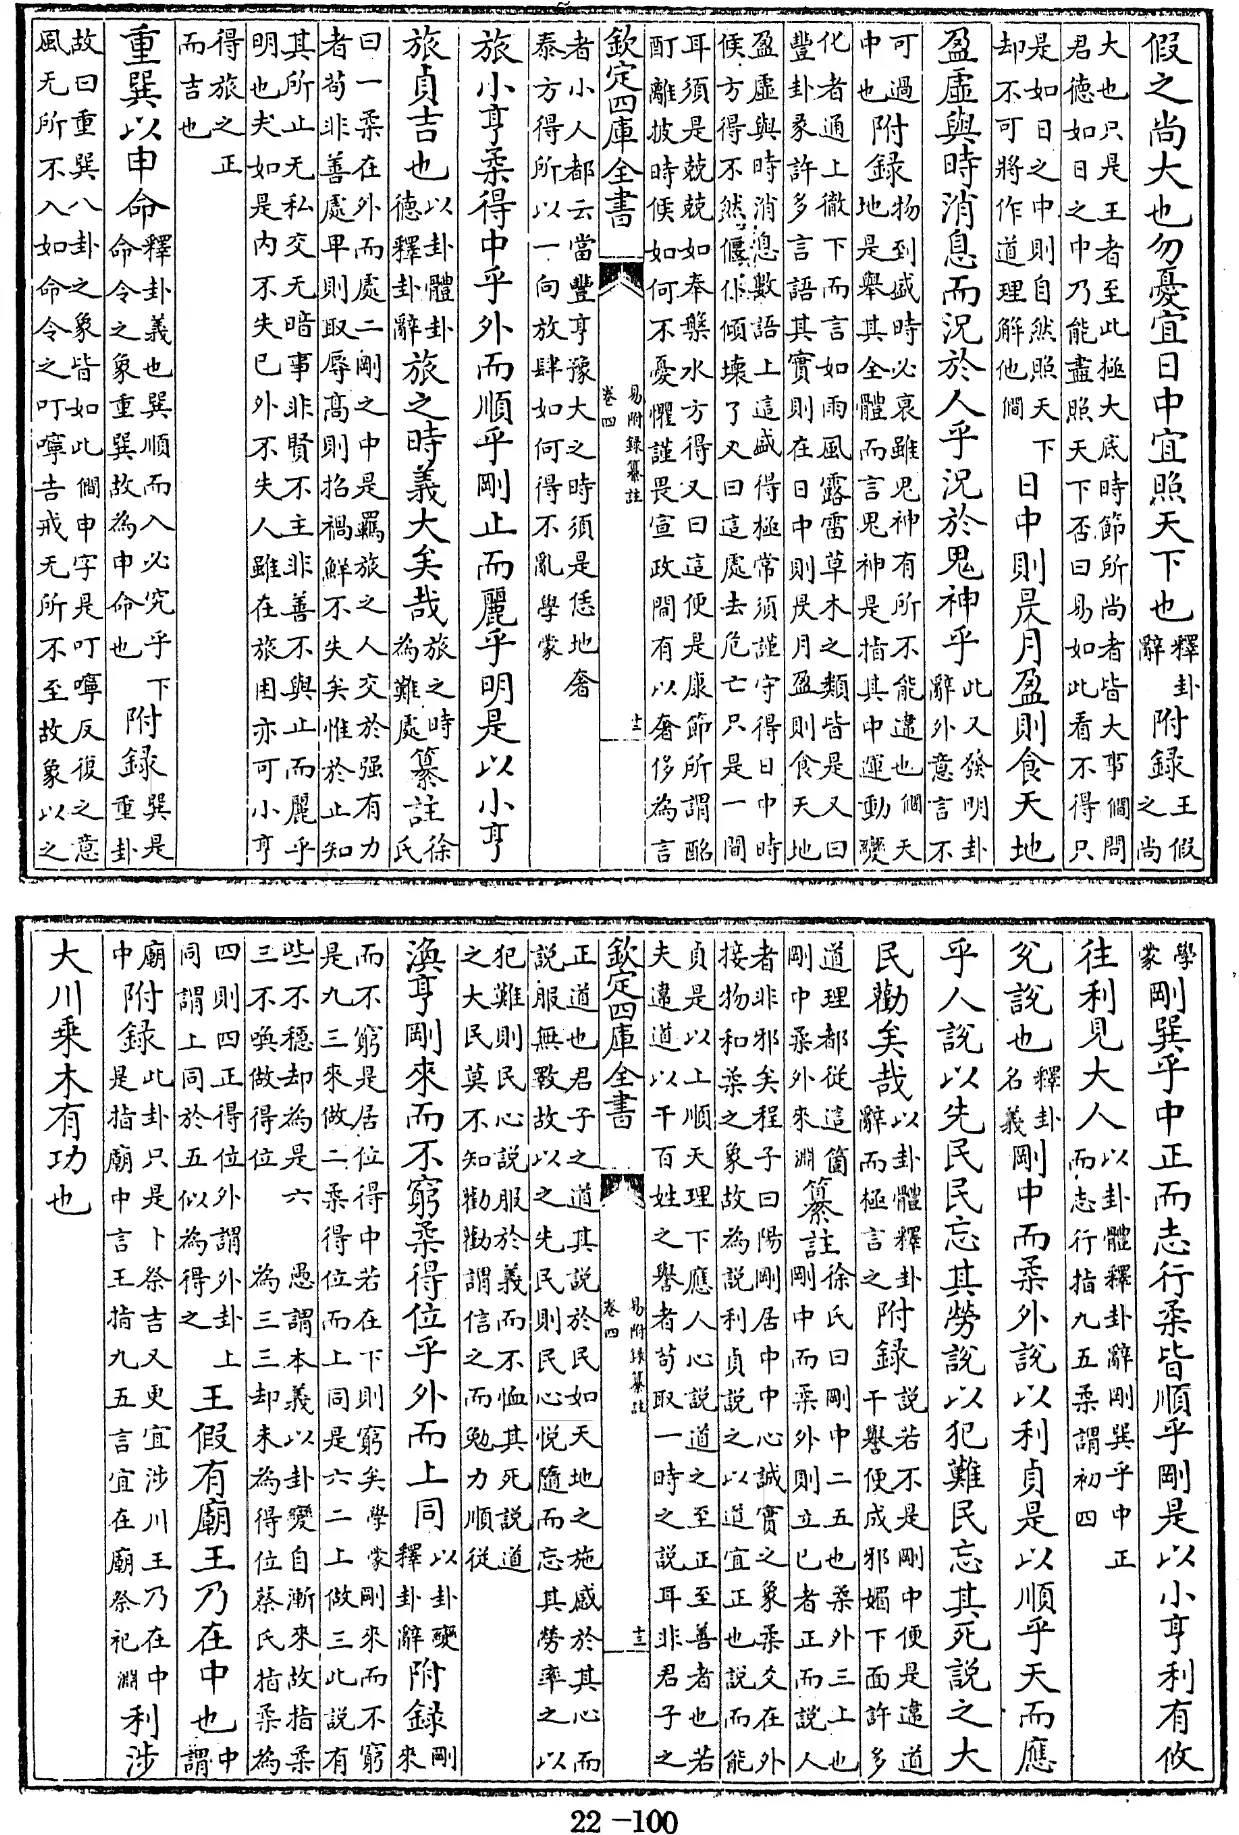 假之尚大也勿憂宜日中宜照天下也釋卦辭附録王假之尚
大也只是王者至此極大底時節所尚者皆大事僴問
君德如日之中乃能盡照天下否曰易如此看不得只
是如日之中則自然照天下却不可將作道理解他僴日中則昃月盈則食天地
盈虛與時消息而況於人乎況於鬼神乎此又發明卦辭外意言不
可過中也附録物到盛時必衰雖鬼神有所不能違也僴天地是舉其全體而言鬼神是指其中運動變
化者通上徹下而言如雨風露雷草木之類皆是又曰
豐卦彖許多言語其實則在日中則昃月盈則食天地
盈虛與時消息數語上這盛得極常須謹守得日中時
候方得不然偃仆傾壞了又曰這處去危亡只是一間
耳須是兢兢如奉槃水方得又曰這便是康節所謂酩
酊離披時候如何不憂懼謹畏宣政間有以奢侈為言
欽定四庫全書 易附録纂註 卷四 十三
者小人都云當豐亨豫大之時須是恁地奢
泰方得所以一向放肆如何得不亂學蒙
旅小亨柔得中乎外而順乎剛止而麗乎明是以小亨
旅貞吉也以卦體卦德釋卦辭旅之時義大矣哉旅之時為難處纂註徐氏
曰一柔在外而處二剛之中是羈旅之人交於强有力
者苟非善處卑則取辱高則招禍鮮不失矣惟於止知
其所止无私交无暗事非賢不主非善不與止而麗乎
明也夫如是内不失已外不失人雖在旅困亦可小亨
得旅之正
而吉也
重巽以申命釋卦義也巽順而入必究乎下命令之象重巽故為申命也附録巽是重卦
故曰重巽八卦之象皆如此僴申字是叮嚀反復之意
風无所不入如命令之叮嚀告戒无所不至故象以之
學蒙剛巽乎中正而志行柔皆順乎剛是以小亨利有攸
往利見大人以卦體釋卦辭剛巽乎中正而志行指九五柔謂初四
兌說也釋卦名義剛中而柔外說以利貞是以順乎天而應
乎人說以先民民忘其勞說以犯難民忘其死說之大
民勸矣哉以卦體釋卦辭而極言之附録說若不是剛中便是違道干譽便成邪媚下面許多
道理都從這箇剛中柔外來淵纂註徐氏曰剛中二五也柔外三上也剛中而柔外則立已者正而說人
者非邪矣程子曰陽剛居中中心誠實之象柔爻在外
接物和柔之象故為說利貞說之以道宜正也說而能
貞是以上順天理下應人心說道之至正至善者也若
夫違道以干百姓之譽者苟取一時之說耳非君子之
欽定四庫全書 易附録纂註 卷四 十三
正道也君子之道其說於民如天地之施感於其心而
說服無斁故以之先民則民心悅隨而忘其勞率之以
犯難則民心說服於義而不恤其死說道
之大民莫不知勸勸謂信之而勉力順從
渙亨剛來而不窮柔得位乎外而上同以卦變釋卦辭附録剛來
而不窮是居位得中若在下則窮矣學蒙剛來而不窮
是九三來做二柔得位而上同是六二上做三此說有
些不穩却為是六三不喚做得位愚謂本義以卦變自漸來故指柔為三三却未為得位蔡氏指柔為
四則四正得位外謂外卦上同謂上同於五似為得之王假有廟王乃在中也中謂
廟中附録此卦只是卜祭吉又更宜涉川王乃在中是指廟中言王指九五言宜在廟祭祀淵利涉
大川乘木有功也
22-100